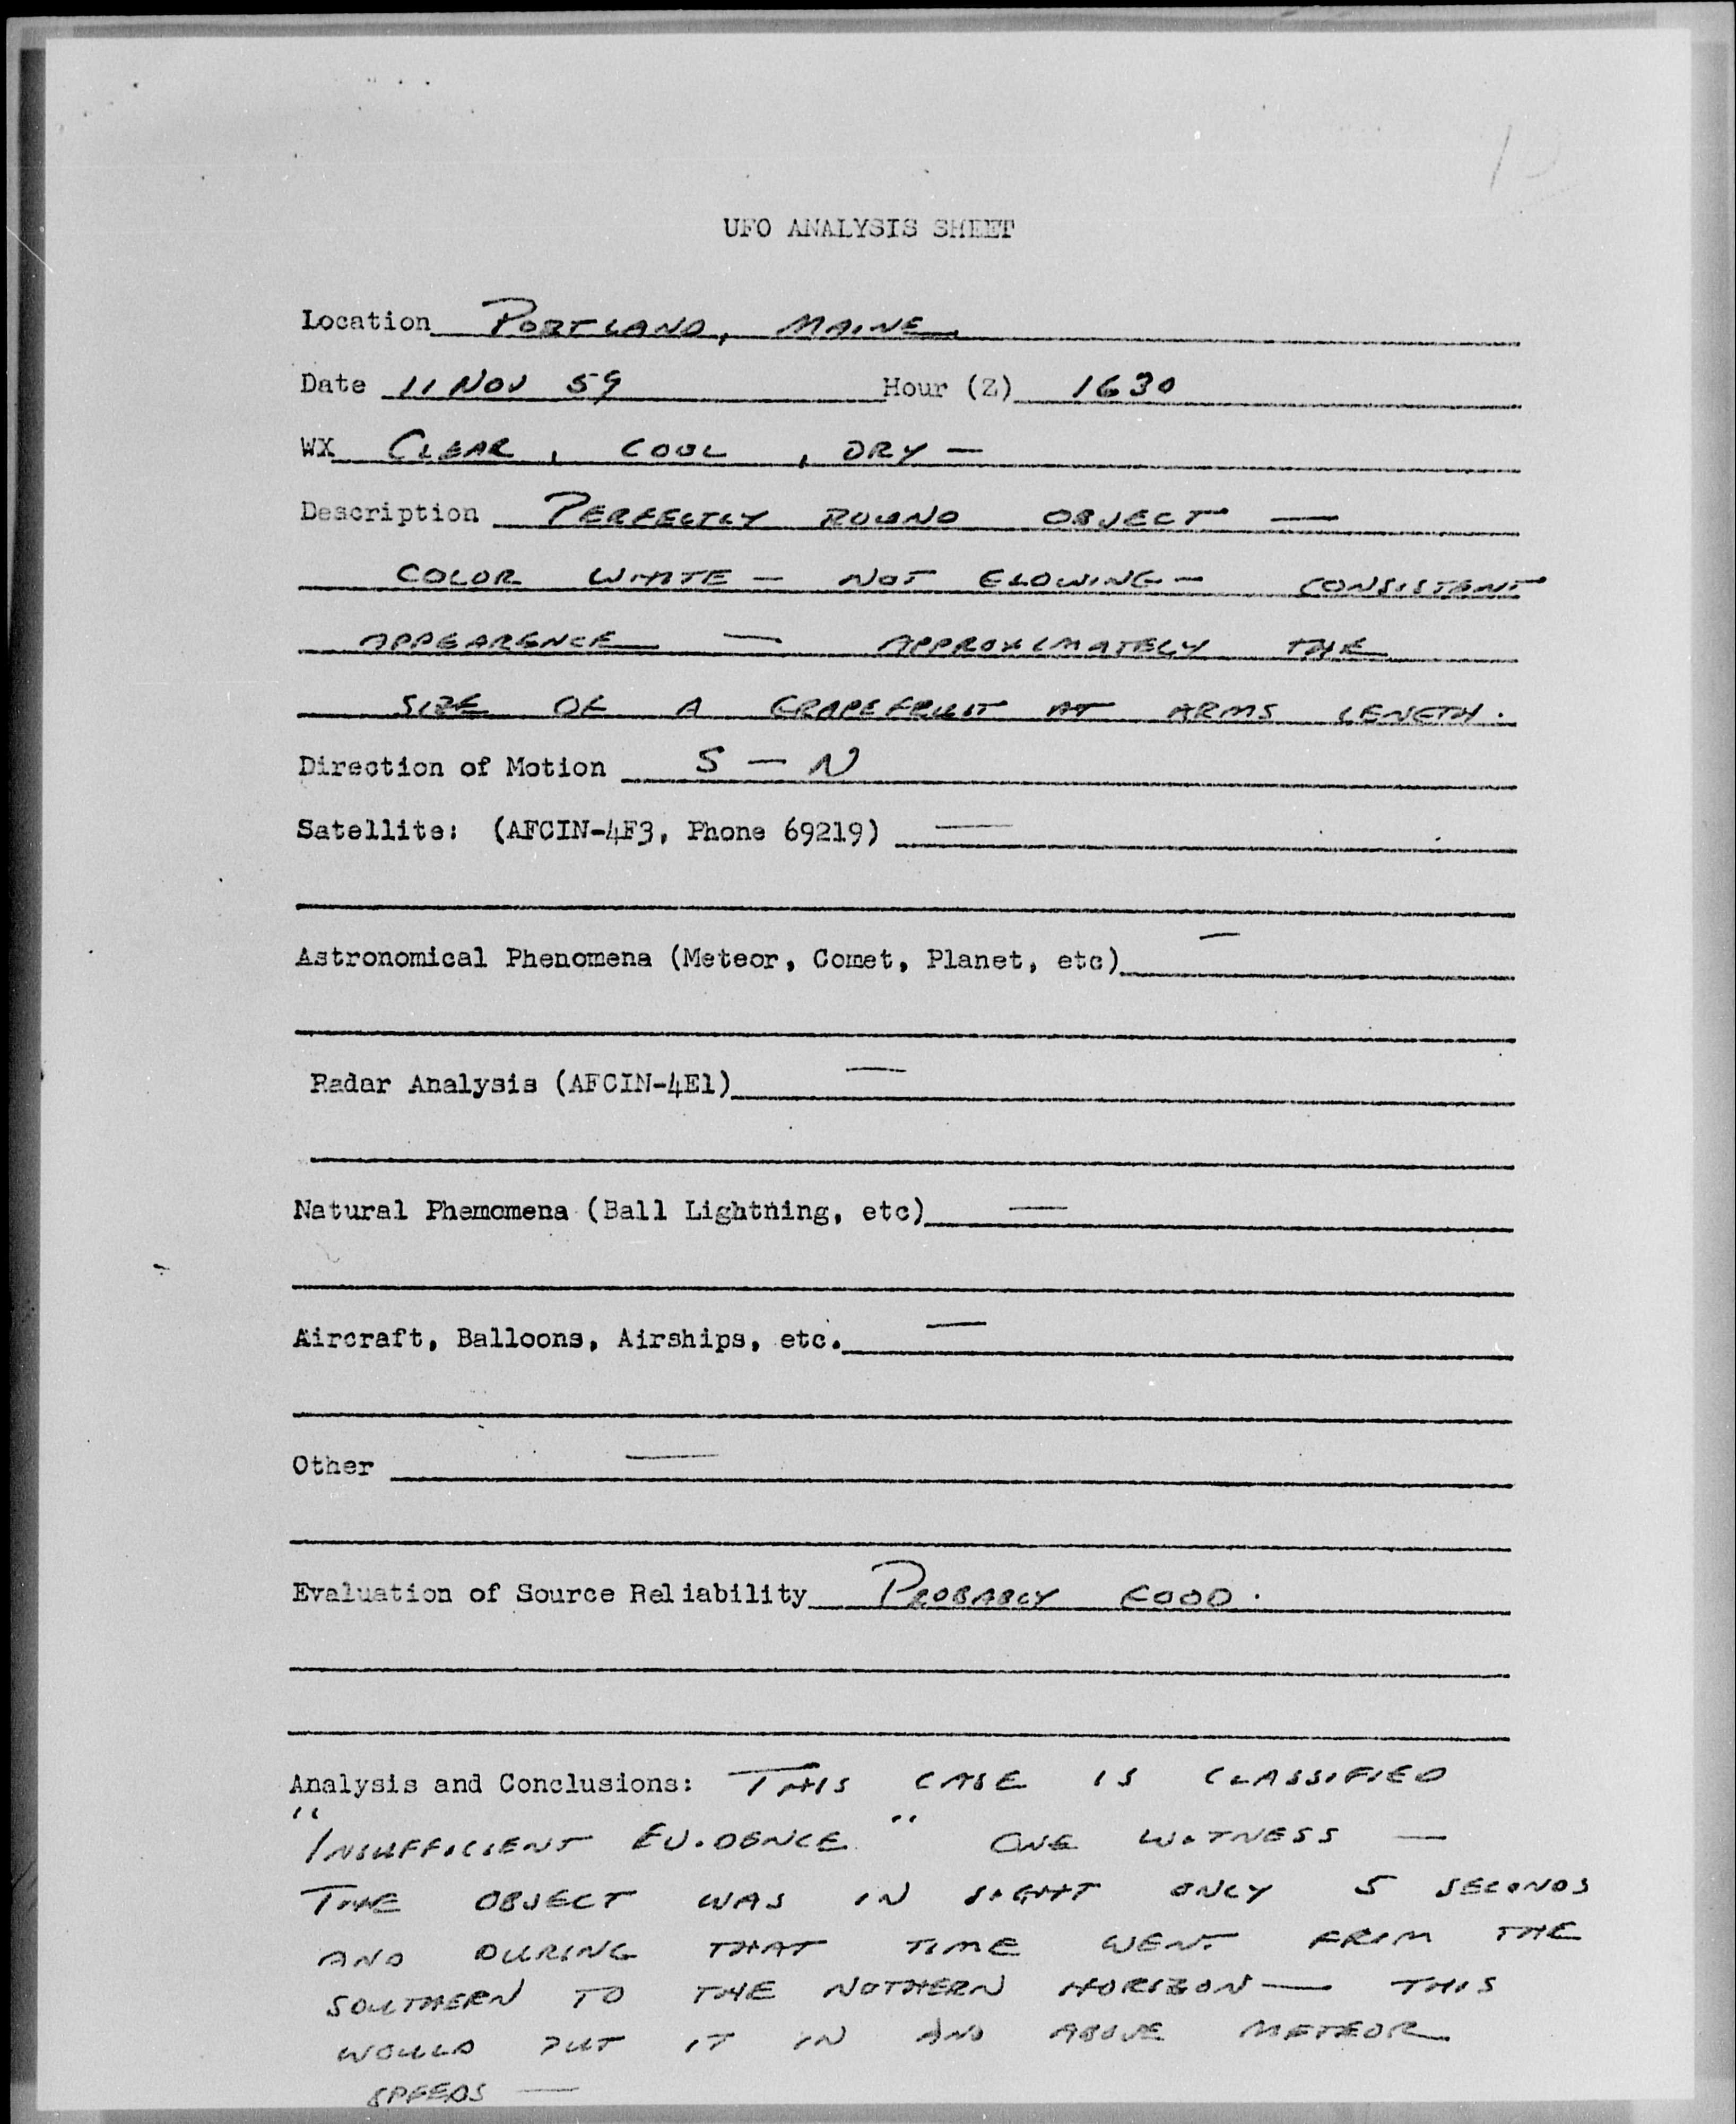 UFO ANALYSIS SHEET
Location PORTLAND, MAINE
Date 11 NOV 59 Hour (Z) 1630
WX CLEAR, COOL, DRY —
Description PERFECTLY ROUND OBJECT —
COLOR WHITE — NOT GLOWING — CONSISTANT
APPEARENCE — APPROXIMATELY THE
SIZE OF A GRAPEFRUIT AT ARMS LENGTH.
Direction of Motion S — N
Satellite: (AFCIN-4F3, Phone 69219) —
Astronomical Phenomena (Meteor, Comet, Planet, etc) —
Radar Analysis (AFCIN-4E1) —
Natural Phemomena (Ball Lightning, etc) —
Aircraft, Balloons, Airships, etc. —
Other —
Evaluation of Source Reliability PROBABLY GOOD.
Analysis and Conclusions: THIS CASE IS CLASSIFIED
"INSUFFICIENT EVIDENCE" ONE WITNESS —
THE OBJECT WAS IN SIGHT ONLY 5 SECONDS
AND DURING THAT TIME WENT FROM THE
SOUTHERN TO THE NOTHERN HORIZON — THIS
WOULD PUT IT IN AND ABOVE METEOR
SPEEDS —